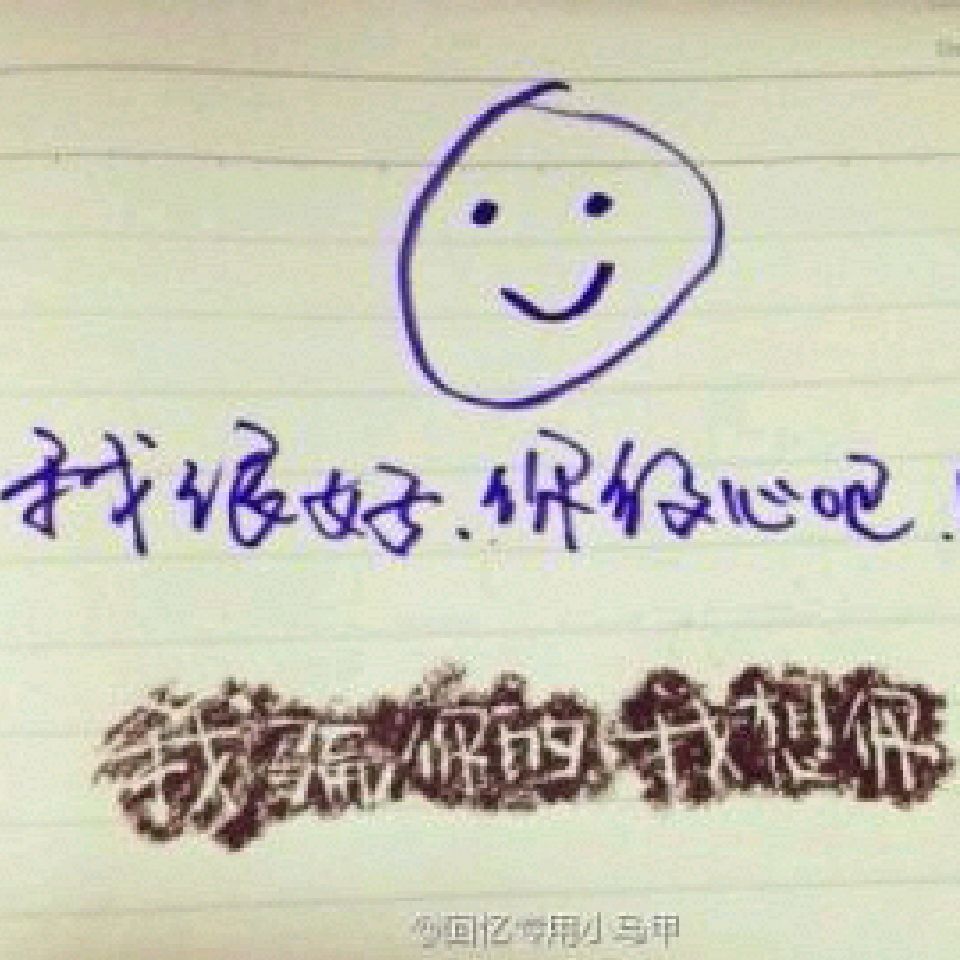 我很好.你放心吧.
我骗你的 我想你
@回忆专用小马甲